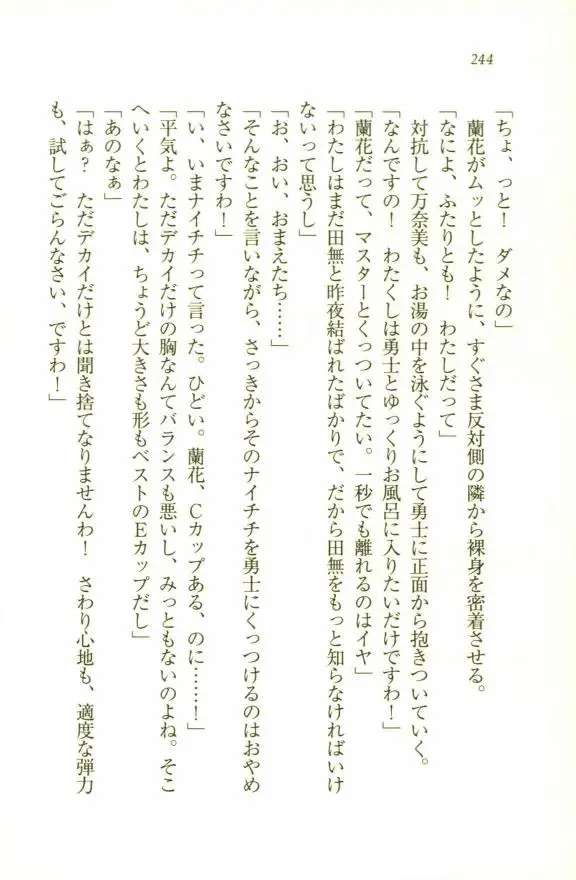 244
「ちょ、っと！　ダメなの」
　蘭花がムッとしたように、すぐさま反対側の隣から裸身を密着させる。
「なによ、ふたりとも！　わたしだって」
　対抗して万奈美も、お湯の中を泳ぐようにして勇士に正面から抱きついていく。
「なんですの！　わたくしは勇士とゆっくりお風呂に入りたいだけですわ！」
「蘭花だって、マスターとくっついてたい。一秒でも離れるのはイヤ」
「わたしはまだ田無と昨夜結ばれたばかりで、だから田無をもっと知らなければいけ
ないって思うし」
「お、おい、おまえたち……」
「そんなことを言いながら、さっきからそのナイチチを勇士にくっつけるのはおやめ
なさいですわ！」
「い、いまナイチチって言った。ひどい。蘭花、Ｃカップある、のに……！」
「平気よ。ただデカイだけの胸なんてバランスも悪いし、みっともないのよね。そこ
へいくとわたしは、ちょうど大きさも形もベストのＥカップだし」
「あのなぁ」
「はぁ？　ただデカイだけとは聞き捨てなりませんわ！　さわり心地も、適度な弾力
も、試してごらんなさい、ですわ！」